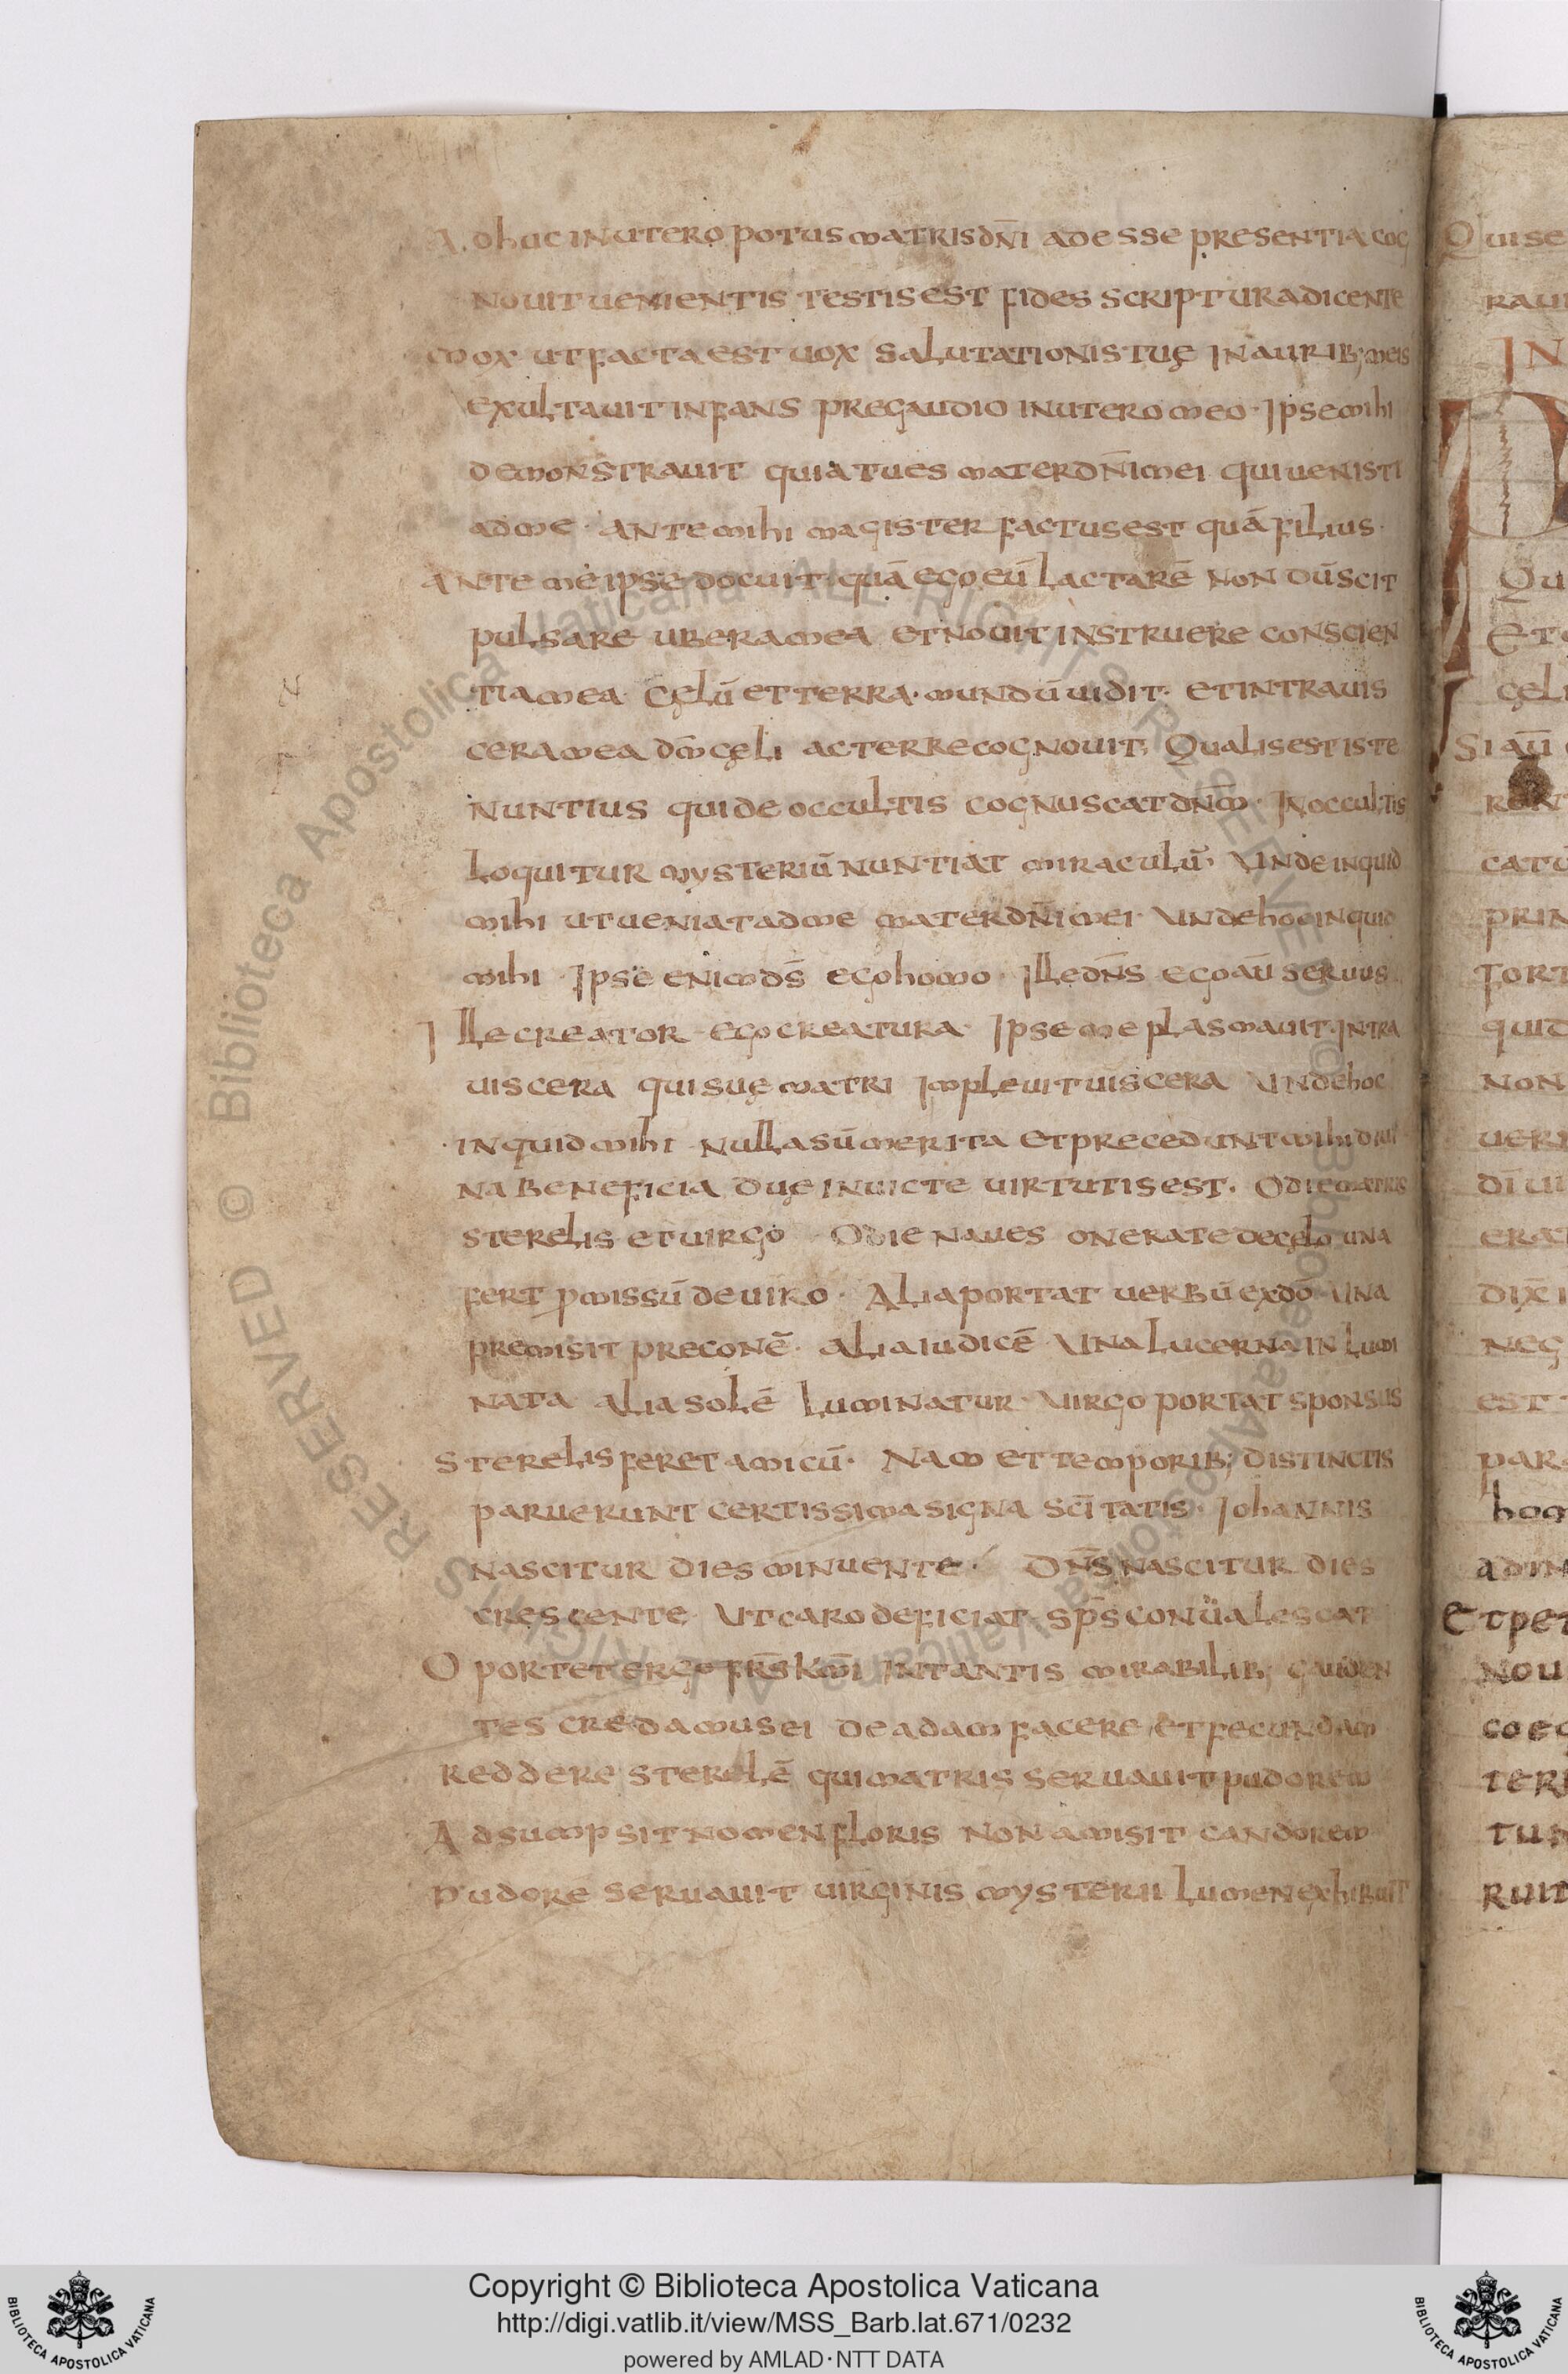 Adhuc in utero potus matris dn̄i adesse presentia cog
nouit uenientis testis est fides scriptura dicente
mox ut facta est uox salutationis tuę in aurib; meis
exultauit infans pre gaudio in utero meo · Ipse mihi
demonstrauit quia tu es mater dn̄i mei qui uenisti
ad me · ante mihi magister factus est quā filius ·
ante me ipse docuit quā ego eū lactarē non dū scit
pulsare ubera mea et nouit instruere conscien
tia mea cęlū et terra · mundū uidit · et intra uis
cera mea dm̄ cęli ac terre cognouit · Qualis est iste
nuntius qui de occultis cognuscat dn̄m · In occultis
loquitur mysteriū nuntiat miraculū · Unde inquid
mihi ut ueniat ad me mater dn̄i mei · Unde hoc inquid
mihi · Ipse enim ds̄ ego homo · Ille dn̄s ego aū seruus
Ille creator ego creatura · Ipse me plasmauit intra
uiscera qui suę matri impleuit uiscera Unde hoc
inquid mihi nulla sū merita et precedunt mihi diui
na beneficia duę inuicte uirtutis est · Odie matris
sterelis et uirgo Odie naues onerate de cęlo una
fert p̄missū de uiro · Alia portat uerbū ex dō Una
premisit preconē · alia iudicē Una lucerna inlumi
nata alia solē luminatur · Uirgo portat sponsus
sterelis feret amicū · Nam et temporib; distinctis
paruerunt certissima signa sc̄itatis · Iohannis
nascitur dies minuente · Dn̄s nascitur dies
crescente · Ut caro deficiat sp̄s conualescat
Oportet ergo fr̄s km̄i in tantis mirabilib; gauden
tes credamus ei de adam facere et fecundam
reddere sterelē qui matris seruauit pudorem
Adsumpsit nomen floris non amisit candorem
Pudorē seruauit uirginis mysterii lumen exhibuit
Qui se
rau
IN
Qu
Et
cęl
Si aū
ron
catu
prin
fort
quid
non
uer
dī ui
era
dix̄ i
neg
est
par
hom
ad in
Et per
nou
co
terr
tu
ruit
Copyright © Biblioteca Apostolica Vaticana
http://digi.vatlib.it/view/MSS_Barb.lat.671/0232
powered by AMLAD·NTT DATA
BIBLIOTECA APOSTOLICA VATICANA
BIBLIOTECA APOSTOLICA VATICANA